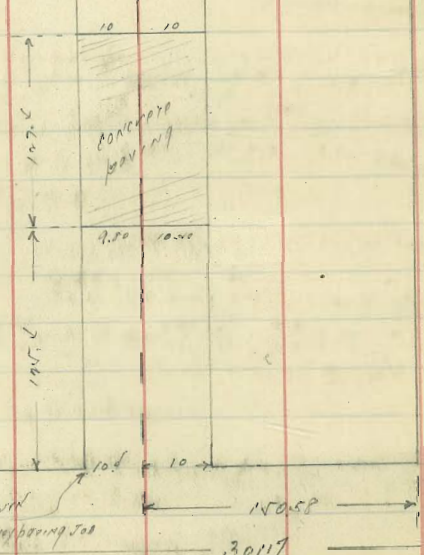 10 10
concrete
paving
9.50 10.50
10.5 10
150.58
paving Job
301.17